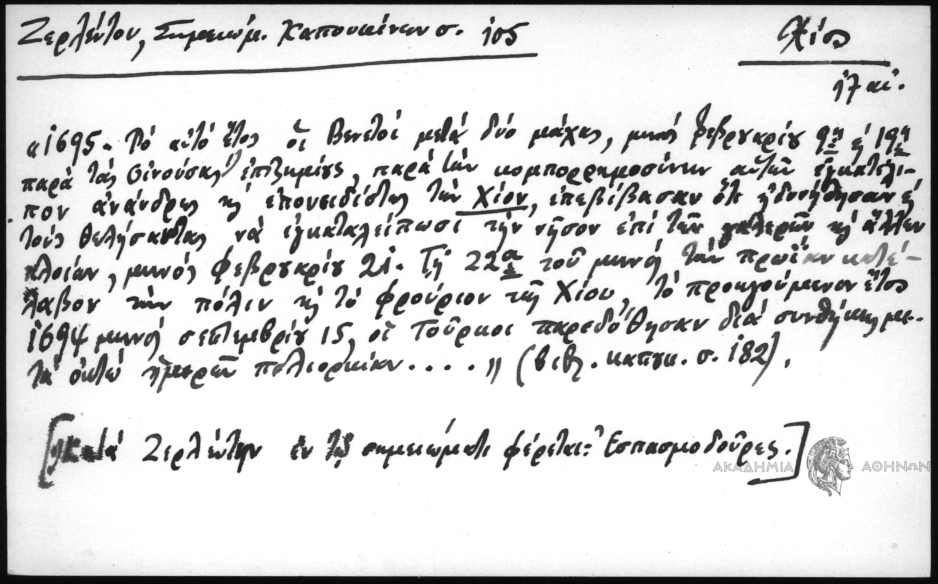 Ζερλέντου, Σημειώμ. Καπουκίνων σ. 105
Χίος
17 αἰ.
«1695 - Τὸ αὐτὸ ἔτος οἱ Βενετοὶ μετὰ δύο μάχας, μηνὸς φεβρουαρίου 9ῃ ἢ 19ῃ
παρὰ τὰς Οἰνούσας ἐπιζημίους, παρὰ τὴν κομπορρημοσύνην αὐτῶν ἐγκατέλι-
πον ἀνάνδρως καὶ ἐπονειδίστως τὴν Χίον, ἐπεβίβασαν ὅτε ἠδυνήθησαν καὶ
τοὺς θελήσαντας νὰ ἐγκαταλείπωσι τὴν νῆσον ἐπὶ τῶν γαλερῶν καὶ ἄλλων
πλοίων, μηνὸς φεβρουαρίου 21. Τῇ 22α τοῦ μηνὸς τὴν πρωΐαν κατέ-
λαβον τὴν πόλιν καὶ τὸ φρούριον τῆς Χίου, τὸ προηγούμενον ἔτος
1694 μηνὸς σεπτεμβρίου 15, οἱ Τοῦρκοι παρεδόθησαν διὰ συνθήκης με-
τὰ ὀκτὼ ἡμερῶν πολιορκίαν....» (βιβλ. καπουκ. σ. 182).
[κατὰ Ζερλέντην ἐν τῷ σημειώματι φέρεται: Ἐσπασμοδοῦρες.]
ΑΚΑΔΗΜΙΑ ΑΘΗΝΩΝ